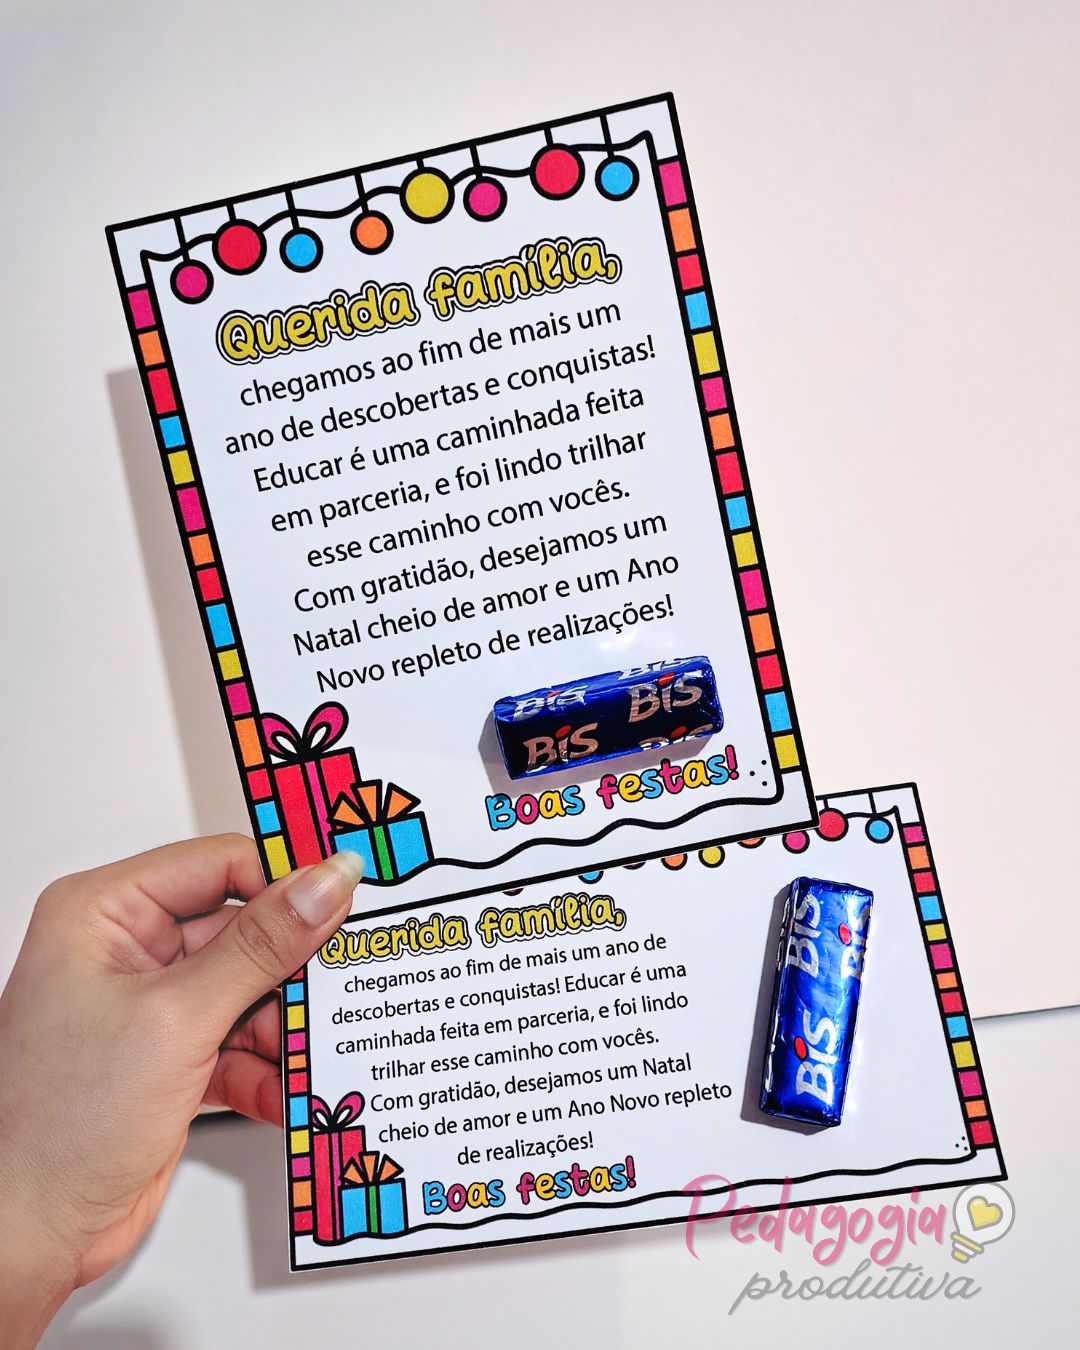 Querida família,
chegamos ao fim de mais um
ano de descobertas e conquistas!
Educar é uma caminhada feita
em parceria, e foi lindo trilhar
esse caminho com vocês.
Com gratidão, desejamos um
Natal cheio de amor e um Ano
Novo repleto de realizações!
BiS BiS
BiS BiS
Boas festas!
Querida família,
chegamos ao fim de mais um ano de
descobertas e conquistas! Educar é uma
caminhada feita em parceria, e foi lindo
trilhar esse caminho com vocês.
Com gratidão, desejamos um Natal
cheio de amor e um Ano Novo repleto
de realizações!
Boas festas!
BiS BiS
BiS
Pedagogia
produtiva